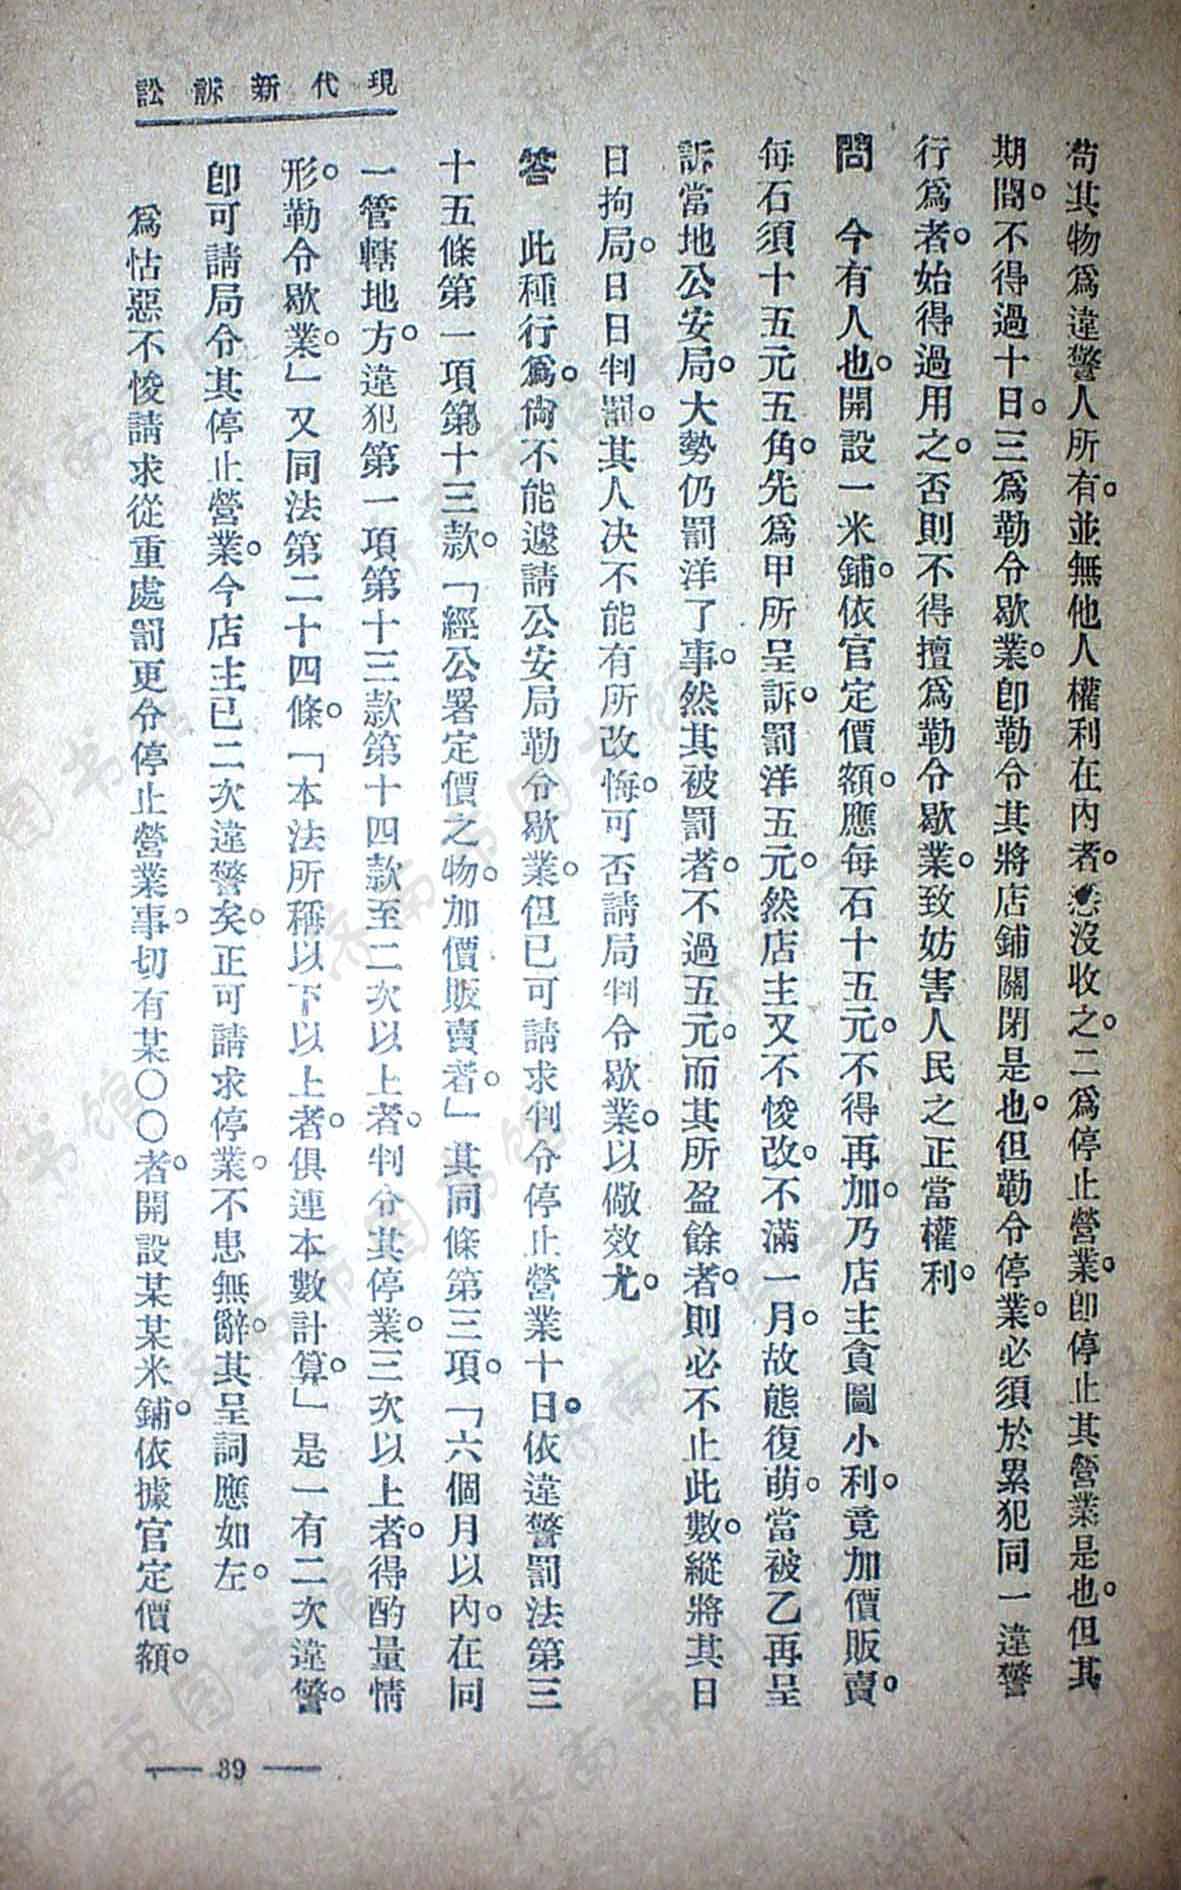 現代新訴訟
苟其物爲違警人所有。並無他人權利在內者。悉沒收之。二爲停止營業。卽停止其營業是也。但其
期間。不得過十日。三爲勒令歇業。卽勒令其將店鋪關閉是也。但勒令停業。必須於累犯同一違警
行爲者。始得過用之。否則不得擅爲勒令歇業。致妨害人民之正當權利。
問　今有人也。開設一米鋪。依官定價額。應每石十五元。不得再加。乃店主貪圖小利。竟加價販賣。
每石須十五元五角。先爲甲所呈訴。罰洋五元。然店主又不悛改。不滿一月。故態復萌。當被乙再呈
訴當地公安局。大勢仍罰洋了事。然其被罰者。不過五元。而其所盈餘者。則必不止此數。縱將其日
日拘局。日日判罰。其人决不能有所改悔。可否請局判令歇業。以儆效尤。
答　此種行爲。尙不能遽請公安局勒令歇業。但已可請求判令停止營業十日。依違警罰法第三
十五條第一項第十三款。「經公署定價之物。加價販賣者。」其同條第三項。「六個月以內。在同
一管轄地方。違犯第一項第十三款第十四款至二次以上者。判令其停業。三次以上者。得酌量情
形。勒令歇業。」又同法第二十四條。「本法所稱以下以上者。俱連本數計算。」是一有二次違警。
卽可請局令其停止營業。今店主已二次違警矣。正可請求停業。不患無辭。其呈詞應如左。
爲怙惡不悛請求從重處罰更令停止營業事。切有某〇〇者。開設某某米鋪。依據官定價額。
— 89 —
濟南市图书馆